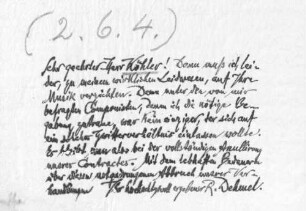 (2.6.4.)
Sehr geehrter Herr Köhler! Dann muß ich lei-
der, zu meinem wirklichen Leidwesen, auf Ihre
Musik verzichten. Denn unter den von mir
befragten Componisten, denen ich die nötige Be-
gabung zutraue, war kein einziger, der sich auf
ein solches verhältnis einlassen wollte.
Es bleibt nun also bei der vollständigen Annullierung
unsres Contractes. Mit dem lebhaften Bedauern
über diesen notgedrungenen Abbruch unsrer Ver-
handlungen Ihr hochachtungsvoll ergebener R. Dehmel.